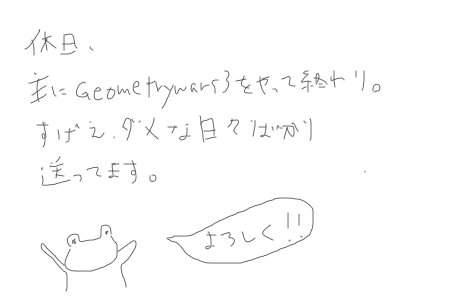 休日、
主にGeometrywars3をやって終わり。
すげえ、ダメな日々ばかり
送ってます。
よろしく!!